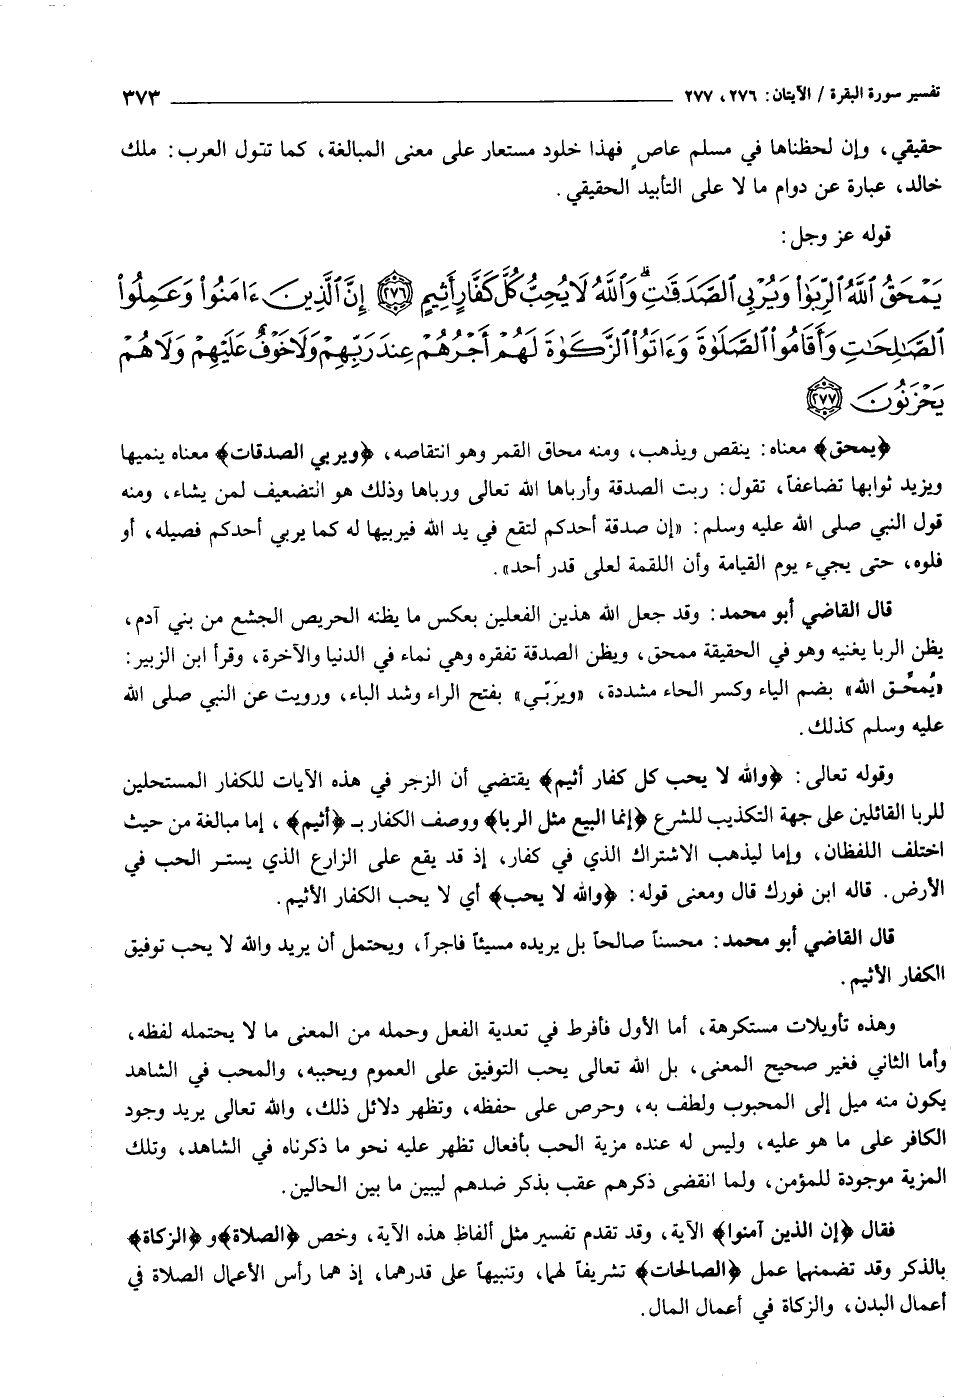 تفسير سورة البقرة / الآيتان: ٢٧٦، ٢٧٧ ٣٧٣
حقيقي، وإن لحظناها في مسلم عاص فهذا خلود مستعار على معنى المبالغة، كما تتول العرب: ملك
خالد، عبارة عن دوام ما لا على التأبيد الحقيقي.
قوله عز وجل:
يَمْحَقُ ٱللَّهُ ٱلرِّبَوٰا۟ وَيُرْبِى ٱلصَّدَقَٰتِ ۗ وَٱللَّهُ لَا يُحِبُّ كُلَّ كَفَّارٍ أَثِيمٍ ٢٧٦ إِنَّ ٱلَّذِينَ ءَامَنُوا۟ وَعَمِلُوا۟
ٱلصَّٰلِحَٰتِ وَأَقَامُوا۟ ٱلصَّلَوٰةَ وَءَاتَوُا۟ ٱلزَّكَوٰةَ لَهُمْ أَجْرُهُمْ عِندَ رَبِّهِمْ وَلَا خَوْفٌ عَلَيْهِمْ وَلَا هُمْ
يَحْزَنُونَ ٢٧٧
﴿يمحق﴾ معناه: ينقص ويذهب، ومنه محاق القمر وهو انتقاصه، ﴿ويربي الصدقات﴾ معناه ينميها
ويزيد ثوابها تضاعفاً، تقول: ربت الصدقة وأرباها الله تعالى ورباها وذلك هو التضعيف لمن يشاء، ومنه
قول النبي صلى الله عليه وسلم: «إن صدقة أحدكم لتقع في يد الله فيربيها له كما يربي أحدكم فصيله، أو
فلوه، حتى يجيء يوم القيامة وأن اللقمة لعلى قدر أحد».
قال القاضي أبو محمد: وقد جعل الله هذين الفعلين بعكس ما يظنه الحريص الجشع من بني آدم،
يظن الربا يغنيه وهو في الحقيقة ممحق، ويظن الصدقة تفقره وهي نماء في الدنيا والآخرة، وقرأ ابن الزبير:
«يُمحِّق الله» بضم الياء وكسر الحاء مشددة، «ويرَبّي» بفتح الراء وشد الباء، ورويت عن النبي صلى الله
عليه وسلم كذلك.
وقوله تعالى: ﴿والله لا يحب كل كفار أثيم﴾ يقتضي أن الزجر في هذه الآيات للكفار المستحلين
للربا القائلين على جهة التكذيب للشرع ﴿إنما البيع مثل الربا﴾ ووصف الكفار بـ ﴿أثيم﴾، إما مبالغة من حيث
اختلف اللفظان، وإما ليذهب الاشتراك الذي في كفار، إذ قد يقع على الزارع الذي يستر الحب في
الأرض. قاله ابن فورك قال ومعنى قوله: ﴿والله لا يحب﴾ أي لا يحب الكفار الأثيم.
قال القاضي أبو محمد: محسناً صالحاً بل يريده مسيئاً فاجراً، ويحتمل أن يريد والله لا يحب توفيق
الكفار الأثيم.
وهذه تأويلات مستكرهة، أما الأول فأفرط في تعدية الفعل وحمله من المعنى ما لا يحتمله لفظه،
وأما الثاني فغير صحيح المعنى، بل الله تعالى يحب التوفيق على العموم ويحببه، والمحب في الشاهد
يكون منه ميل إلى المحبوب ولطف به، وحرص على حفظه، وتظهر دلائل ذلك، والله تعالى يريد وجود
الكافر على ما هو عليه، وليس له عنده مزية الحب بأفعال تظهر عليه نحو ما ذكرناه في الشاهد، وتلك
المزية موجودة للمؤمن، ولما انقضى ذكرهم عقب بذكر ضدهم ليبين ما بين الحالين.
فقال ﴿إن الذين آمنوا﴾ الآية، وقد تقدم تفسير مثل ألفاظ هذه الآية، وخص ﴿الصلاة﴾ و﴿الزكاة﴾
بالذكر وقد تضمنهما عمل ﴿الصالحات﴾ تشريفاً لهما، وتنبيهاً على قدرهما، إذ هما رأس الأعمال الصلاة في
أعمال البدن، والزكاة في أعمال المال.